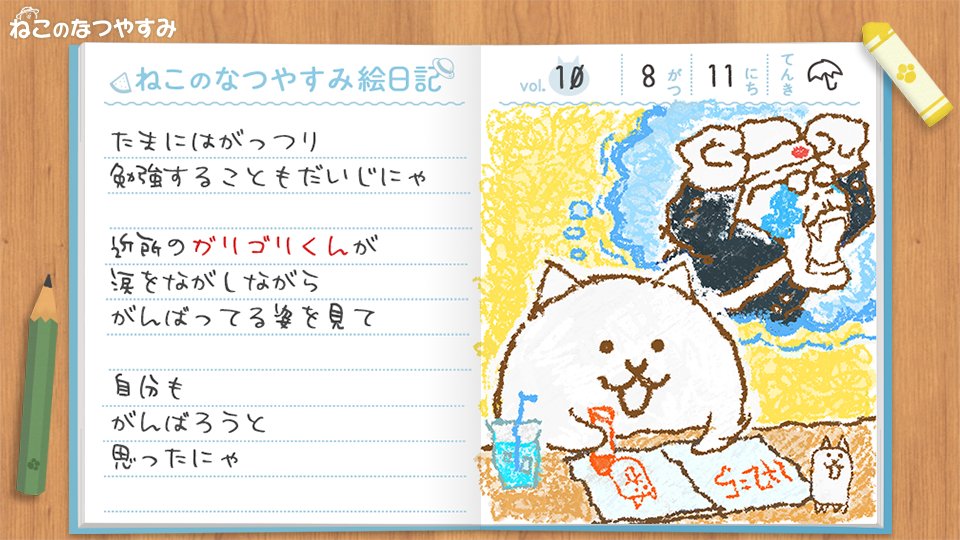 ねこのなつやすみ
ねこのなつやすみ絵日記
たまにはがっつり
勉強することもだいじにゃ
近所のガリゴリくんが
涙をながしながら
がんばってる姿を見て
自分も
がんばろうと
思ったにゃ
vol. 10 8がつ 11にち てんき